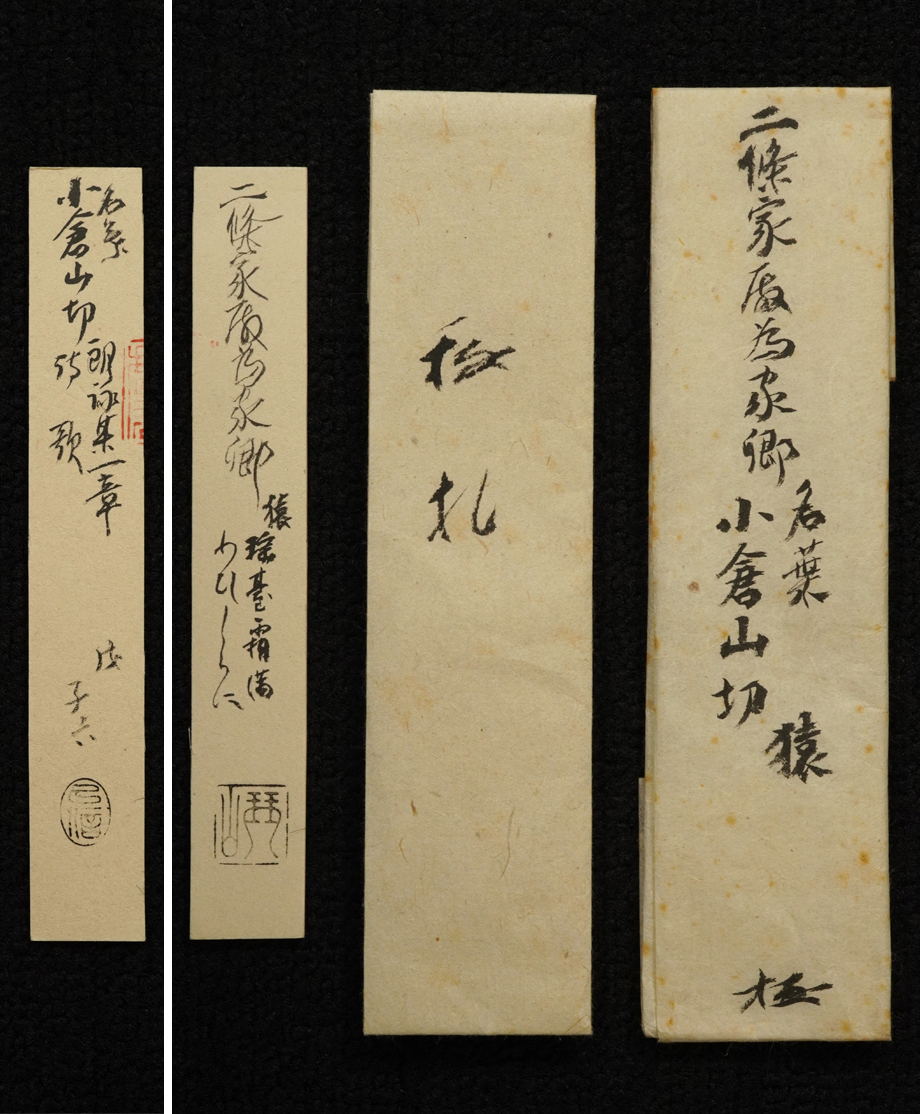 名葉
小倉山切
朗詠集一章
詩歌
戊
子六
二條家 為家卿
猿
瑤臺霜満
わひしらに
琴山
極札
二條家 為家卿
名葉
小倉山切
猿
極